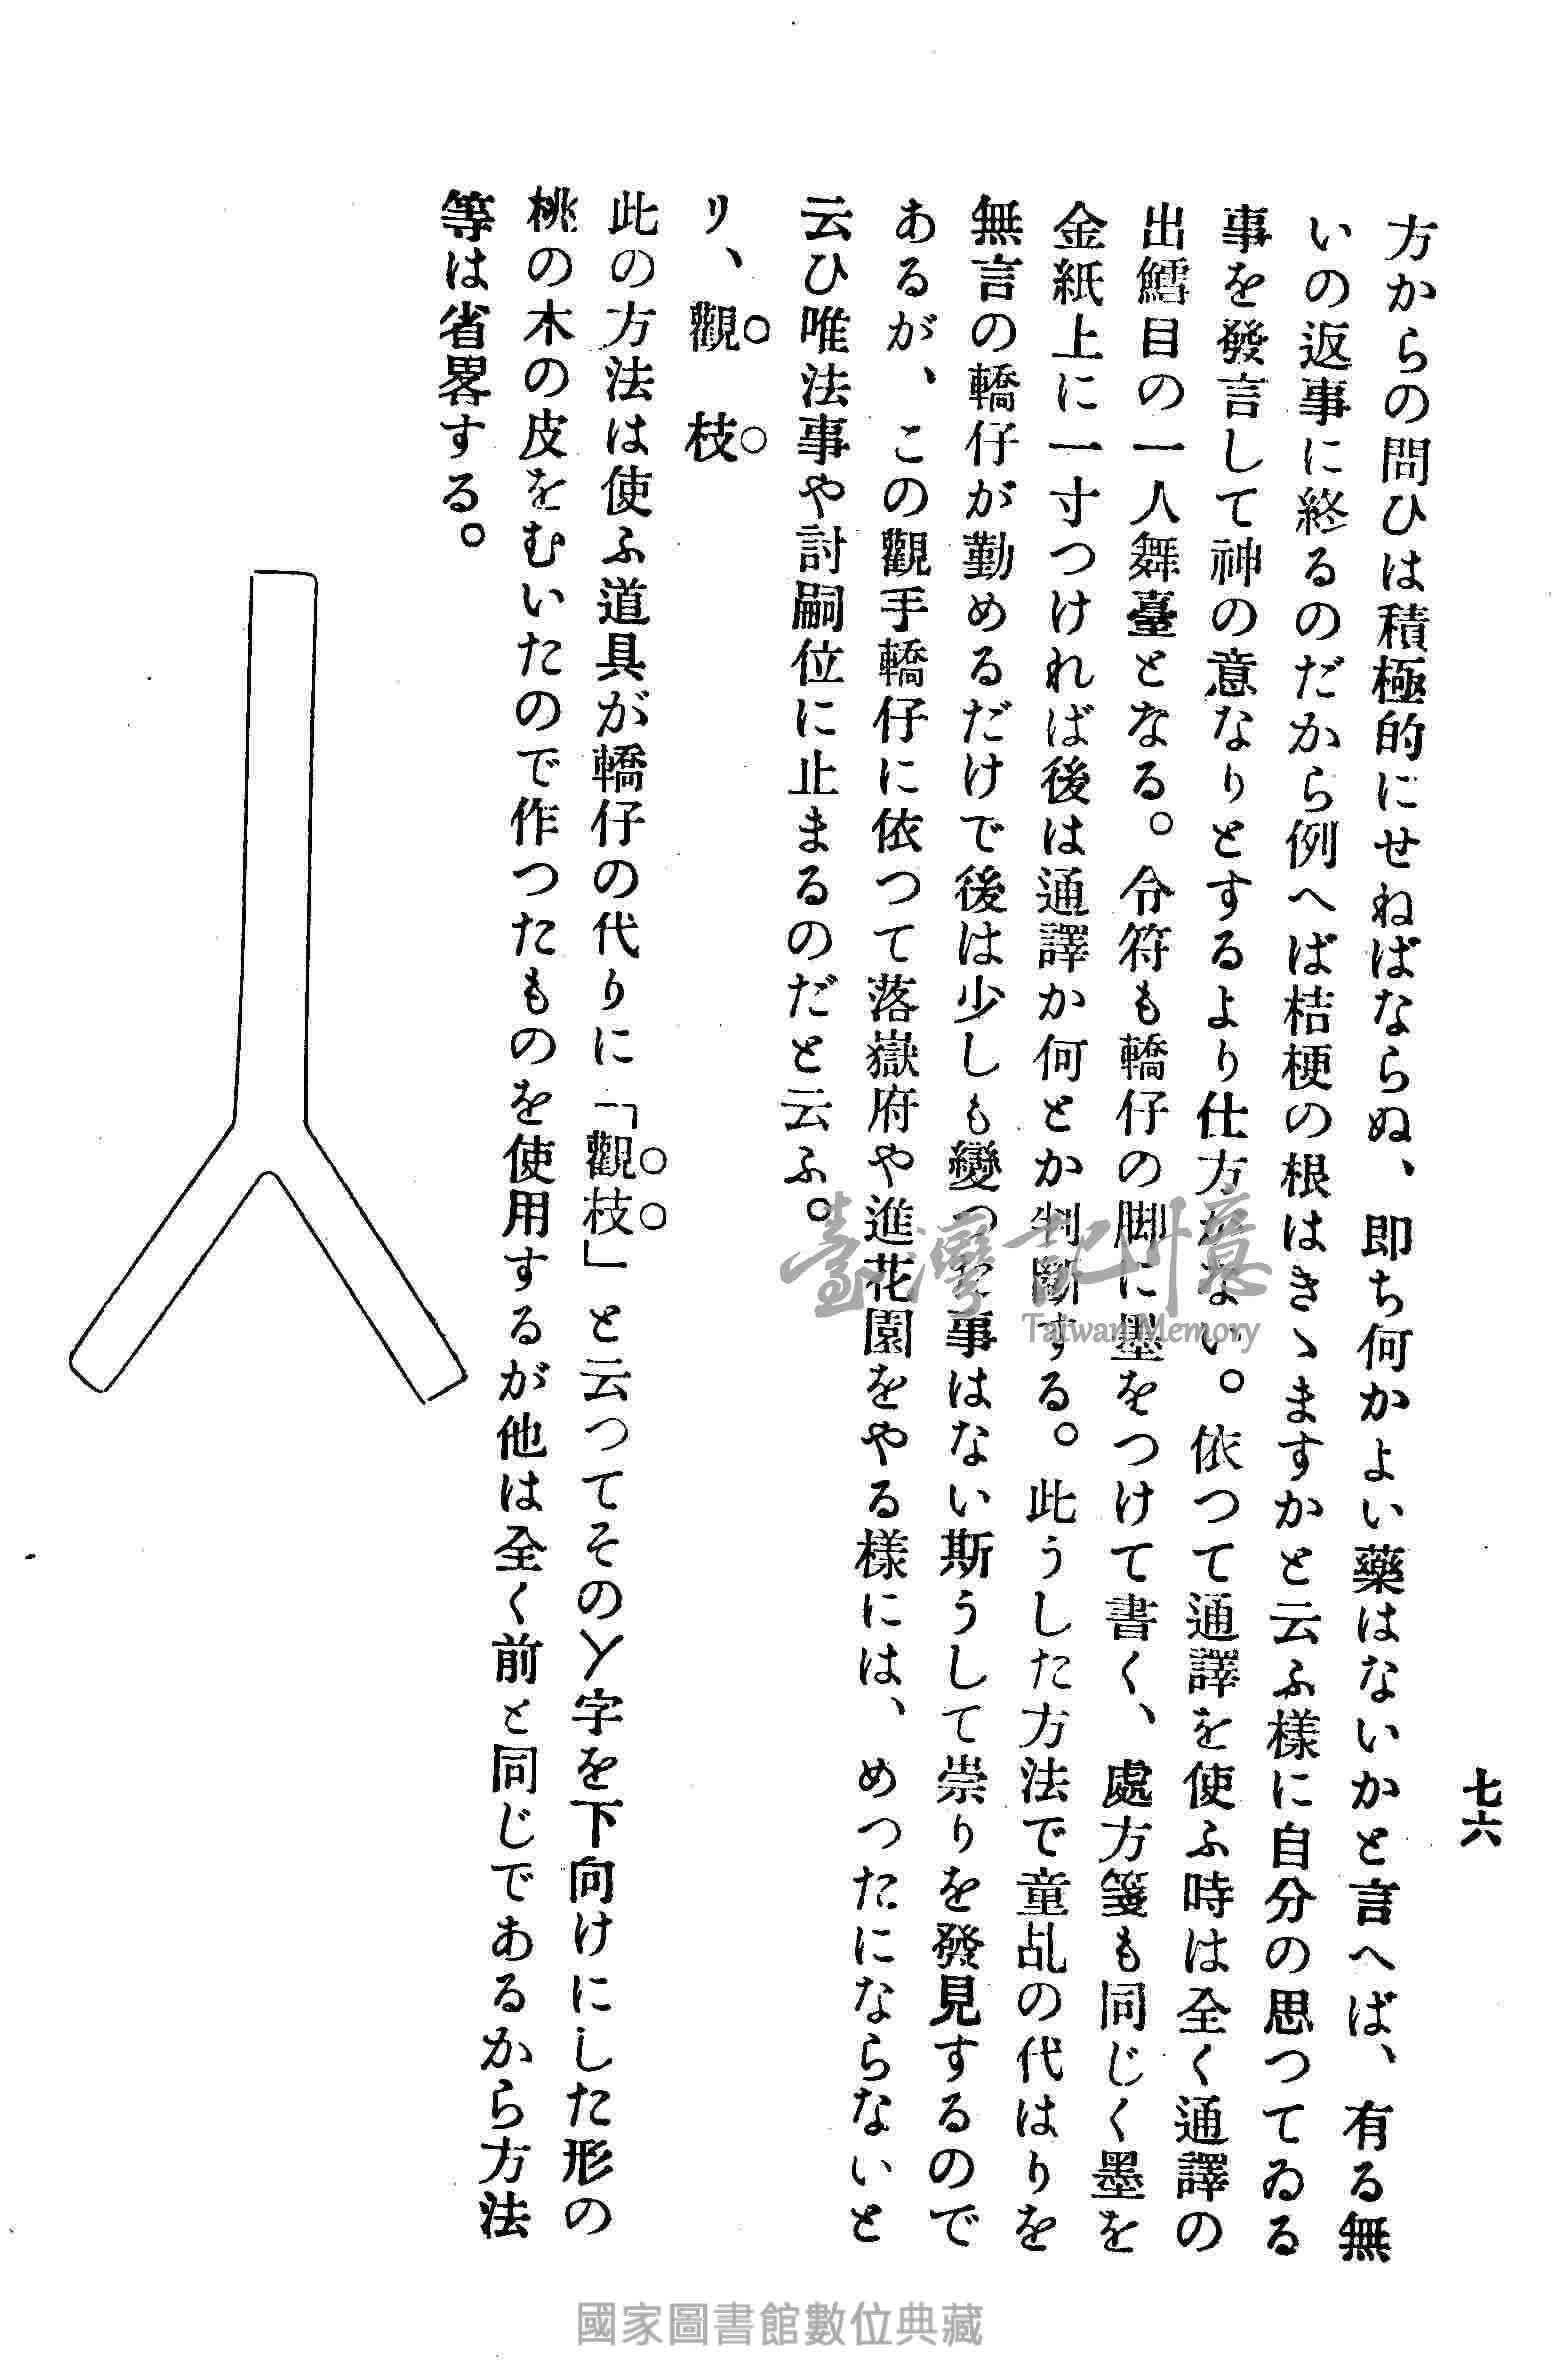 七六
方からの問ひは積極的にせねばならぬ、即ち何かよい藥はないかと言へば、有る無
いの返事に終るのだから例へば桔梗の根はきゝますかと云ふ樣に自分の思つてゐる
事を發言して神の意なりとするより仕方がない。依つて通譯を使ふ時は全く通譯の
出鱈目の一人舞臺となる。令符も轎仔の脚に墨をつけて書く、處方箋も同じく墨を
金紙上に一寸つければ後は通譯か何とか判斷する。此うした方法で童乩の代はりを
無言の轎仔が勤めるだけで後は少しも變つた事はない斯うして崇りを發見するので
あるが、この觀手轎仔に依つて落嶽府や進花園をやる樣には、めつたにならないと
云ひ唯法事や討嗣位に止まるのだと云ふ。
リ、觀枝
此の方法は使ふ道具が轎仔の代りに「觀枝」と云つてその丫字を下向けにした形の
桃の木の皮をむいたので作つたものを使用するが他は全く前と同じであるから方法
等は省畧する。
臺灣記憶
Taiwan Memory
國家圖書館數位典藏